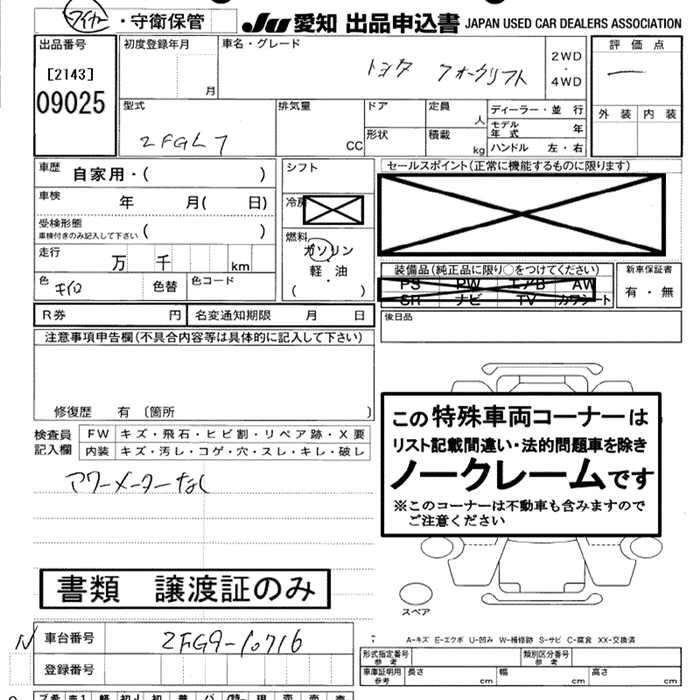 ワイヤー・守衛保管
JU 愛知 出品申込書 JAPAN USED CAR DEALERS ASSOCIATION
出品番号
[2143]
09025
初度登録年月
月
車名・グレード
トヨタ フォークリフト
2WD
・
4WD
評価点
外装 内装
型式
2FGL7
排気量
CC
ドア
形状
定員
人
積載
kg
ディーラー・並行
モデル年式 年
ハンドル 左・右
車歴 自家用・( )
車検 年 月( 日)
受検形態
車検付きのみ記入して下さい ( )
走行 万 千 km
色 キイロ 色替 色コード
シフト
冷房
燃料
ガソリン
軽・油
( ・ )
セールスポイント(正常に機能するものに限ります)
装備品(純正品に限り○をつけてください)
PS PW エアB AW
SR ナビ TV カワシート
新車保証書
有・無
R券 円 名変通知期限 月 日
後日品
注意事項申告欄(不具合内容等は具体的に記入して下さい)
修復歴 有 〔箇所 〕
検査員
記入欄
FW キズ・飛石・ヒビ割・リペア跡・X要
内装 キズ・汚レ・コゲ・穴・スレ・キレ・破レ
アワーメーターなし
この特殊車両コーナーは
リスト記載間違い・法的問題車を除き
ノークレームです
※このコーナーは不動車も含みますので
ご注意ください
書類 譲渡証のみ
スペア
N 車台番号 2FG9-10716
登録番号
A-キズ E-エクボ U-凹み W-補修跡 S-サビ C-腐食 XX-交換済
形式指定番号
参考
類別区分番号
参考
車庫証明用
参考
長さ cm 幅 cm 高さ cm